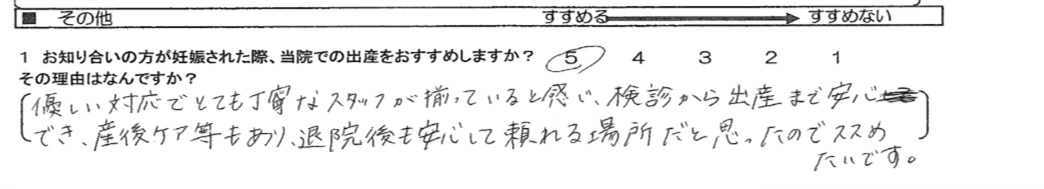 ■ その他 すすめる すすめない
1 お知り合いの方が妊娠された際、当院での出産をおすすめしますか? 5 4 3 2 1
その理由はなんですか?
優しい対応でとても丁寧なスタッフが揃っていると感じ、検診から出産まで安心
でき、産後ケア等もあり、退院後も安心して頼れる場所だと思ったのでススめ
たいです。